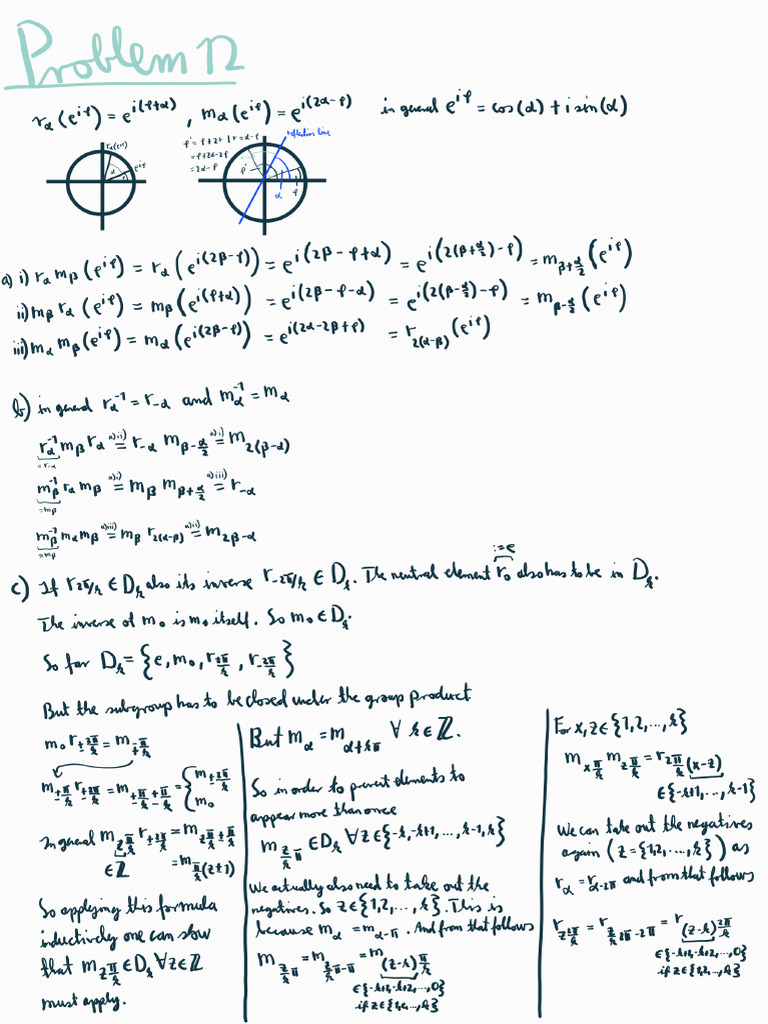 Problem 12
r_α(e^{iφ}) = e^{i(φ+α)} , m_α(e^{iφ}) = e^{i(2α-φ)} in general e^{iφ} = cos(α) + i sin(α)
r_α(e^{iφ})
α
e^{iφ}
φ' = φ+2r | r = α-φ
= φ+2α-2φ
= 2α-φ
reflection line
φ'
α
φ
a) i) r_α m_β (e^{iφ}) = r_α (e^{i(2β-φ)}) = e^{i(2β-φ+α)} = e^{i(2(β+α/2)-φ)} = m_{β+α/2} (e^{iφ})
ii) m_β r_α (e^{iφ}) = m_β (e^{i(φ+α)}) = e^{i(2β-φ-α)} = e^{i(2(β-α/2)-φ)} = m_{β-α/2} (e^{iφ})
iii) m_α m_β (e^{iφ}) = m_α (e^{i(2β-φ)}) = e^{i(2α-2β+φ)} = r_{2(α-β)} (e^{iφ})
b) in general r_α^{-1} = r_{-α} and m_α^{-1} = m_α
r_α^{-1} m_β r_α =^{a)ii)} r_{-α} m_{β-α/2} =^{a)i)} m_{2(β-α)}
= r_{-α}
m_β^{-1} r_α m_β =^{a)i)} m_β m_{β+α/2} =^{a)iii)} r_{-α}
= m_β
m_β^{-1} m_α m_β =^{a)iii)} m_β r_{2(α-β)} =^{a)ii)} m_{2β-α}
= m_β
i=e
c) If r_{2π/k} ∈ D_k also its inverse r_{-2π/k} ∈ D_k. The neutral element r_0 also has to be in D_k.
The inverse of m_0 is m_0 itself. So m_0 ∈ D_k.
So far D_k = {e, m_0, r_{2π/k}, r_{-2π/k}}
But the subgroup has to be closed under the group product
m_0 r_{±2π/k} = m_{∓π/k}
m_{±π/k} r_{±2π/k} = m_{±π/k ±π/k} = { m_{±2π/k}
m_0
In general m_{zπ/k} r_{±2π/k} = m_{zπ/k ±π/k}
∈ Z
= m_{π/k(z±1)}
So applying this formula
inductively one can show
that m_{zπ/k} ∈ D_k ∀z∈Z
must apply.
But m_α = m_{α+kπ} ∀ k∈Z.
So in order to prevent elements to
appear more than once
m_{z/k π} ∈ D_k ∀z∈{-k,-k+1,...,k-1,k}
We actually also need to take out the
negatives. So z∈{1,2,...,k}. This is
because m_α = m_{α-π}. And from that follows
m_{z/k π} = m_{z/k π-π} = m_{(z-k)π/k}
∈{-k+1,-k+2,...,0}
if z∈{1,2,...,k}
For x,z∈{1,2,...,k}
m_{xπ/k} m_{zπ/k} = r_{2π/k (x-z)}
∈{-k+1,...,k-1}
We can take out the negatives
again (z={1,2,...,k}) as
r_α = r_{α-2π} and from that follows
r_{z2π/k} = r_{z/k 2π-2π} = r_{(z-k)2π/k}
∈{-k+1,-k+2,...,0}
if z∈{1,2,...,k}